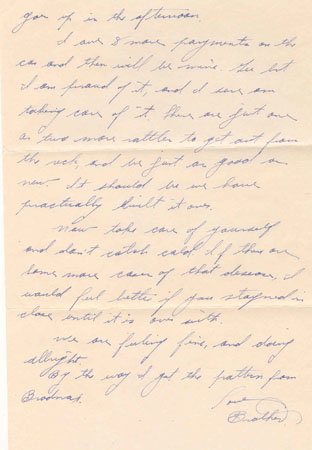 goes up in the afternoon.
I owe 8 more payments on the
car and then will be mine. Gee but
I am proud of it, and I sure am
taking care of it, there are just one
or two more rattles to get out from
the and be just as good as
new. It should be we have
practically built it over.
Now take care of yourself
and don't catch cold If there are
some more cases of that desease, I
would feel better if you stayed in
close until it is over with.
We are feeling fine, and doing
allright.
By the way I got the pattern from
Brodnax.
Love
Brother